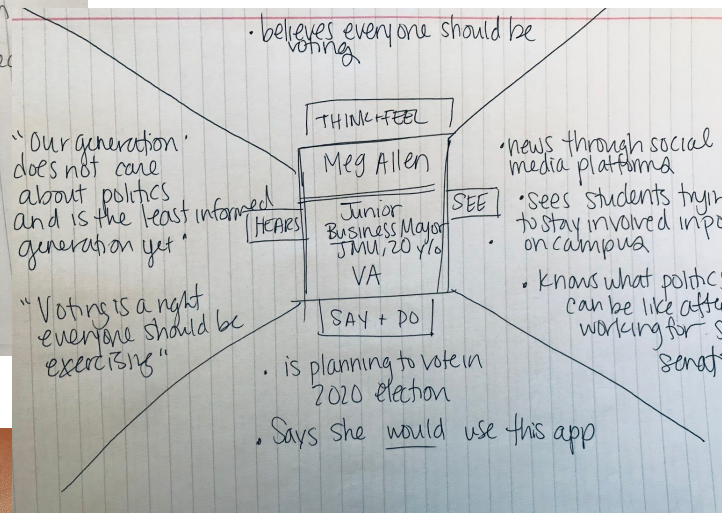 • believes everyone should be
voting
THINK + FEEL
Meg Allen
Junior
Business Major
JMU, 20 y/o
VA
HEARS
"Our generation
does not care
about politics
and is the least informed
generation yet"
"Voting is a right
everyone should be
exercising"
SEE
• news through social
media platforms
• sees students tryin
to stay involved in po
on campus
• knows what politics
can be like afte
working for s
senat
SAY + DO
• is planning to vote in
2020 election
• Says she would use this app